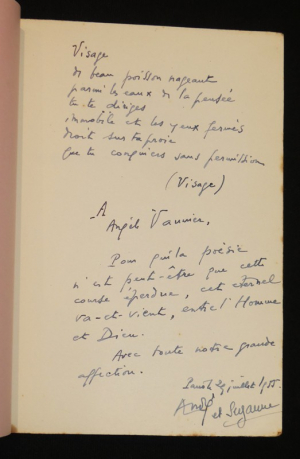 Visage
de beau poisson nageant
parmi les eaux de la pensée
tu te diriges
immobile et les yeux fermés
droit sur ta proie
que tu conquiers sans permission
(Visage)
A
Angèle Vannier,
Pour qui la poésie
n'est peut-être que cette
course éperdue, cet éternel
va-et-vient, entre l'Homme
et Dieu.
Avec toute notre grande
affection.
juillet 1955.
et Suzanne